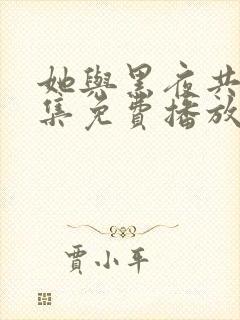 她與黑夜共
集免費播放
賈小平